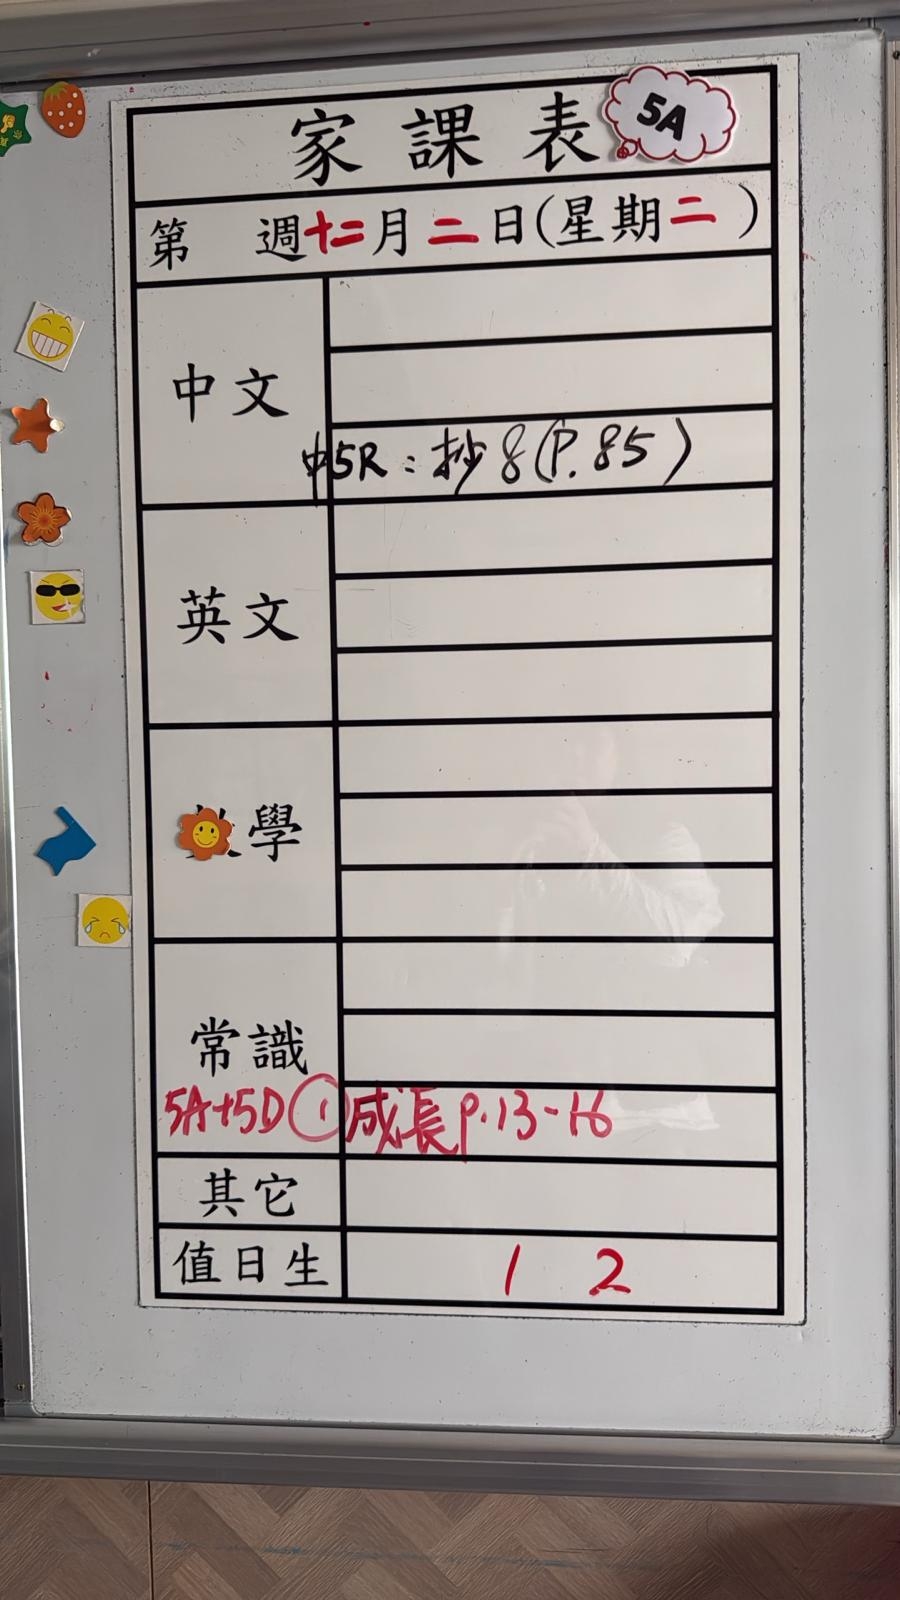 家課表 5A
第 週十二月二日(星期二)
中文
中5R:抄8(P.85)
英文
學
常識
5A+5D ① 成長 p.13-16
其它
值日生 1 2